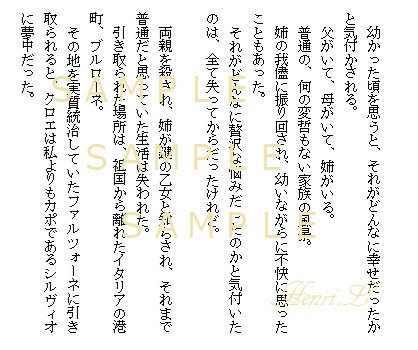 幼かった頃を思うと、それがどんなに幸せだったか
と気付かされる。
父がいて、母がいて、姉がいる。
普通の、何の変哲もない家族の風景。
姉の我儘に振り回され、幼いながらに不快に思った
こともあった。
それがどんなに贅沢な悩みだったのかと気付いた
のは、全て失ってからだったけれど。
両親を殺され、姉が鍵の乙女と
され、それまで
普通だと思っていた生活は失われた。
引き取られた場所は、祖国から離れたイタリアの港
町、ブルローネ。
その地を実質統治していたファルツォーネに引き
取られると、クロエは私よりもカポであるシルヴィオ
に夢中だった。
SAMPLE
SAMPLE
SAMPLE
Henri.L